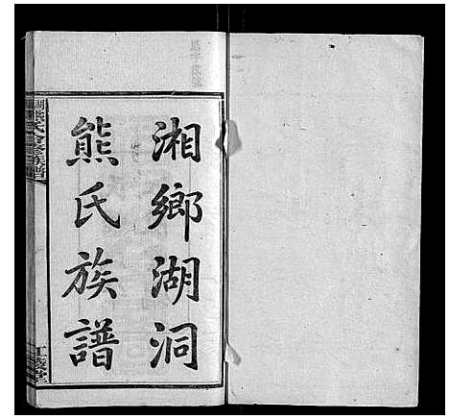 湘鄉湖洞
熊氏族譜